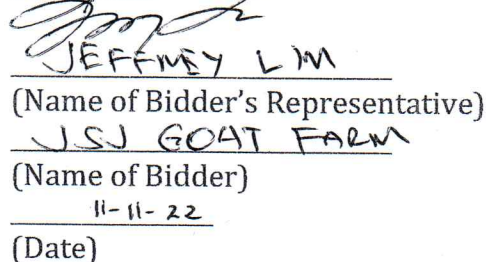 JEFFNEY LIM
(Name of Bidder's Representative)
JSJ GOAT FARM
(Name of Bidder)
11-11-22
(Date)